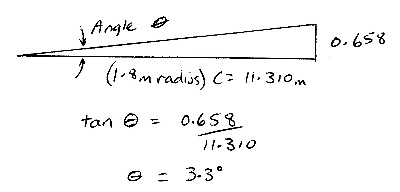 Angle θ
0.658
(1.8m radius) C = 11.310m
tan θ = 0.658
11.310
θ = 3.3°